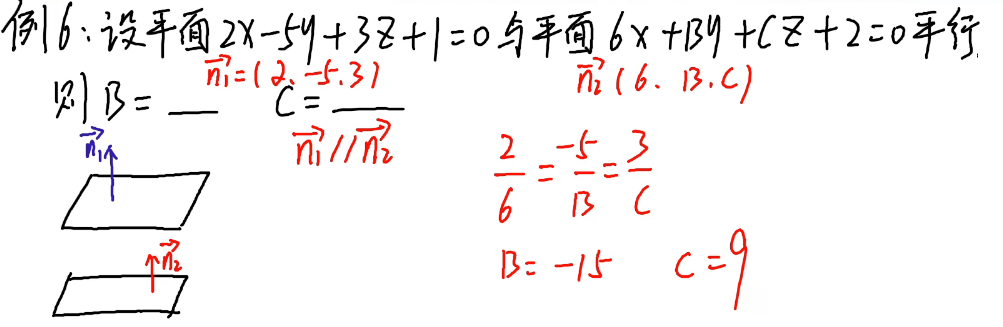 例6:设平面2x-5y+3z+1=0与平面6x+By+Cz+2=0平行
n₁→=(2、-5.3) n₂→(6、B.C)
则B=___ C=____
n₁→//n₂→
n₁→
2/6=-5/B=3/C
n₂→
B=-15 C=9